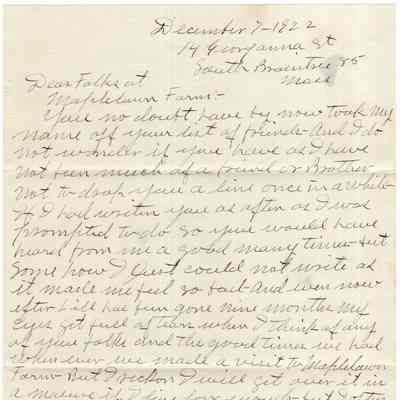 December 7-1922
14 Georganna St
South Braintree 85
Mass
Dear Folks at
Maplelawn Farm:-
You no doubt have by now took my
name off your list of friends And I do
not wonder if you have as I have
not been much of a friend or Brother
not to drop you a line once in a while
If I had writen you as often as I was
prompted to do so you would have
heard from me a good many times but
some how I just could not write as
it made me feel so bad And even now
after Lill has been gone nine months My
Eyes get full of tears when I think of any
of you folks and the good times we had
when ever we made a visit to Maplelawn
Farm But I reckon I will get over it in
a